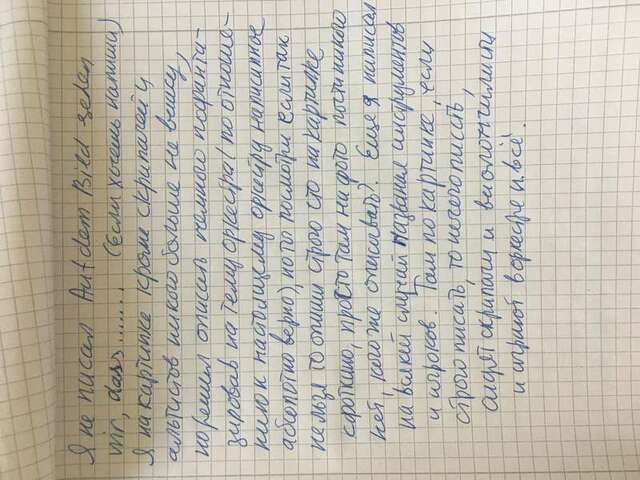 Я не писал Auf dem Bild sehen
wir, dass...... (Если хочешь напиши)
Я на картинке кроме скрипачей и
альтистов никого больше не вижу,
но решил описать немного пофанта-
зировав на тему оркестра (по отноше-
нию к настоящему оркестру написанное
абсолютно верно), но ты посмотри если так
нельзя то опиши строго что на картинке
сроткино, просто там на фото почти никого
нет, кого же описывать). Еще я написал
на всякий случай названия инструментов
и игроков. Там по картинке, если
строго писать, то нечего писать,
сидят скрипачи и виолончелисты
и играют в оркестре и всё.